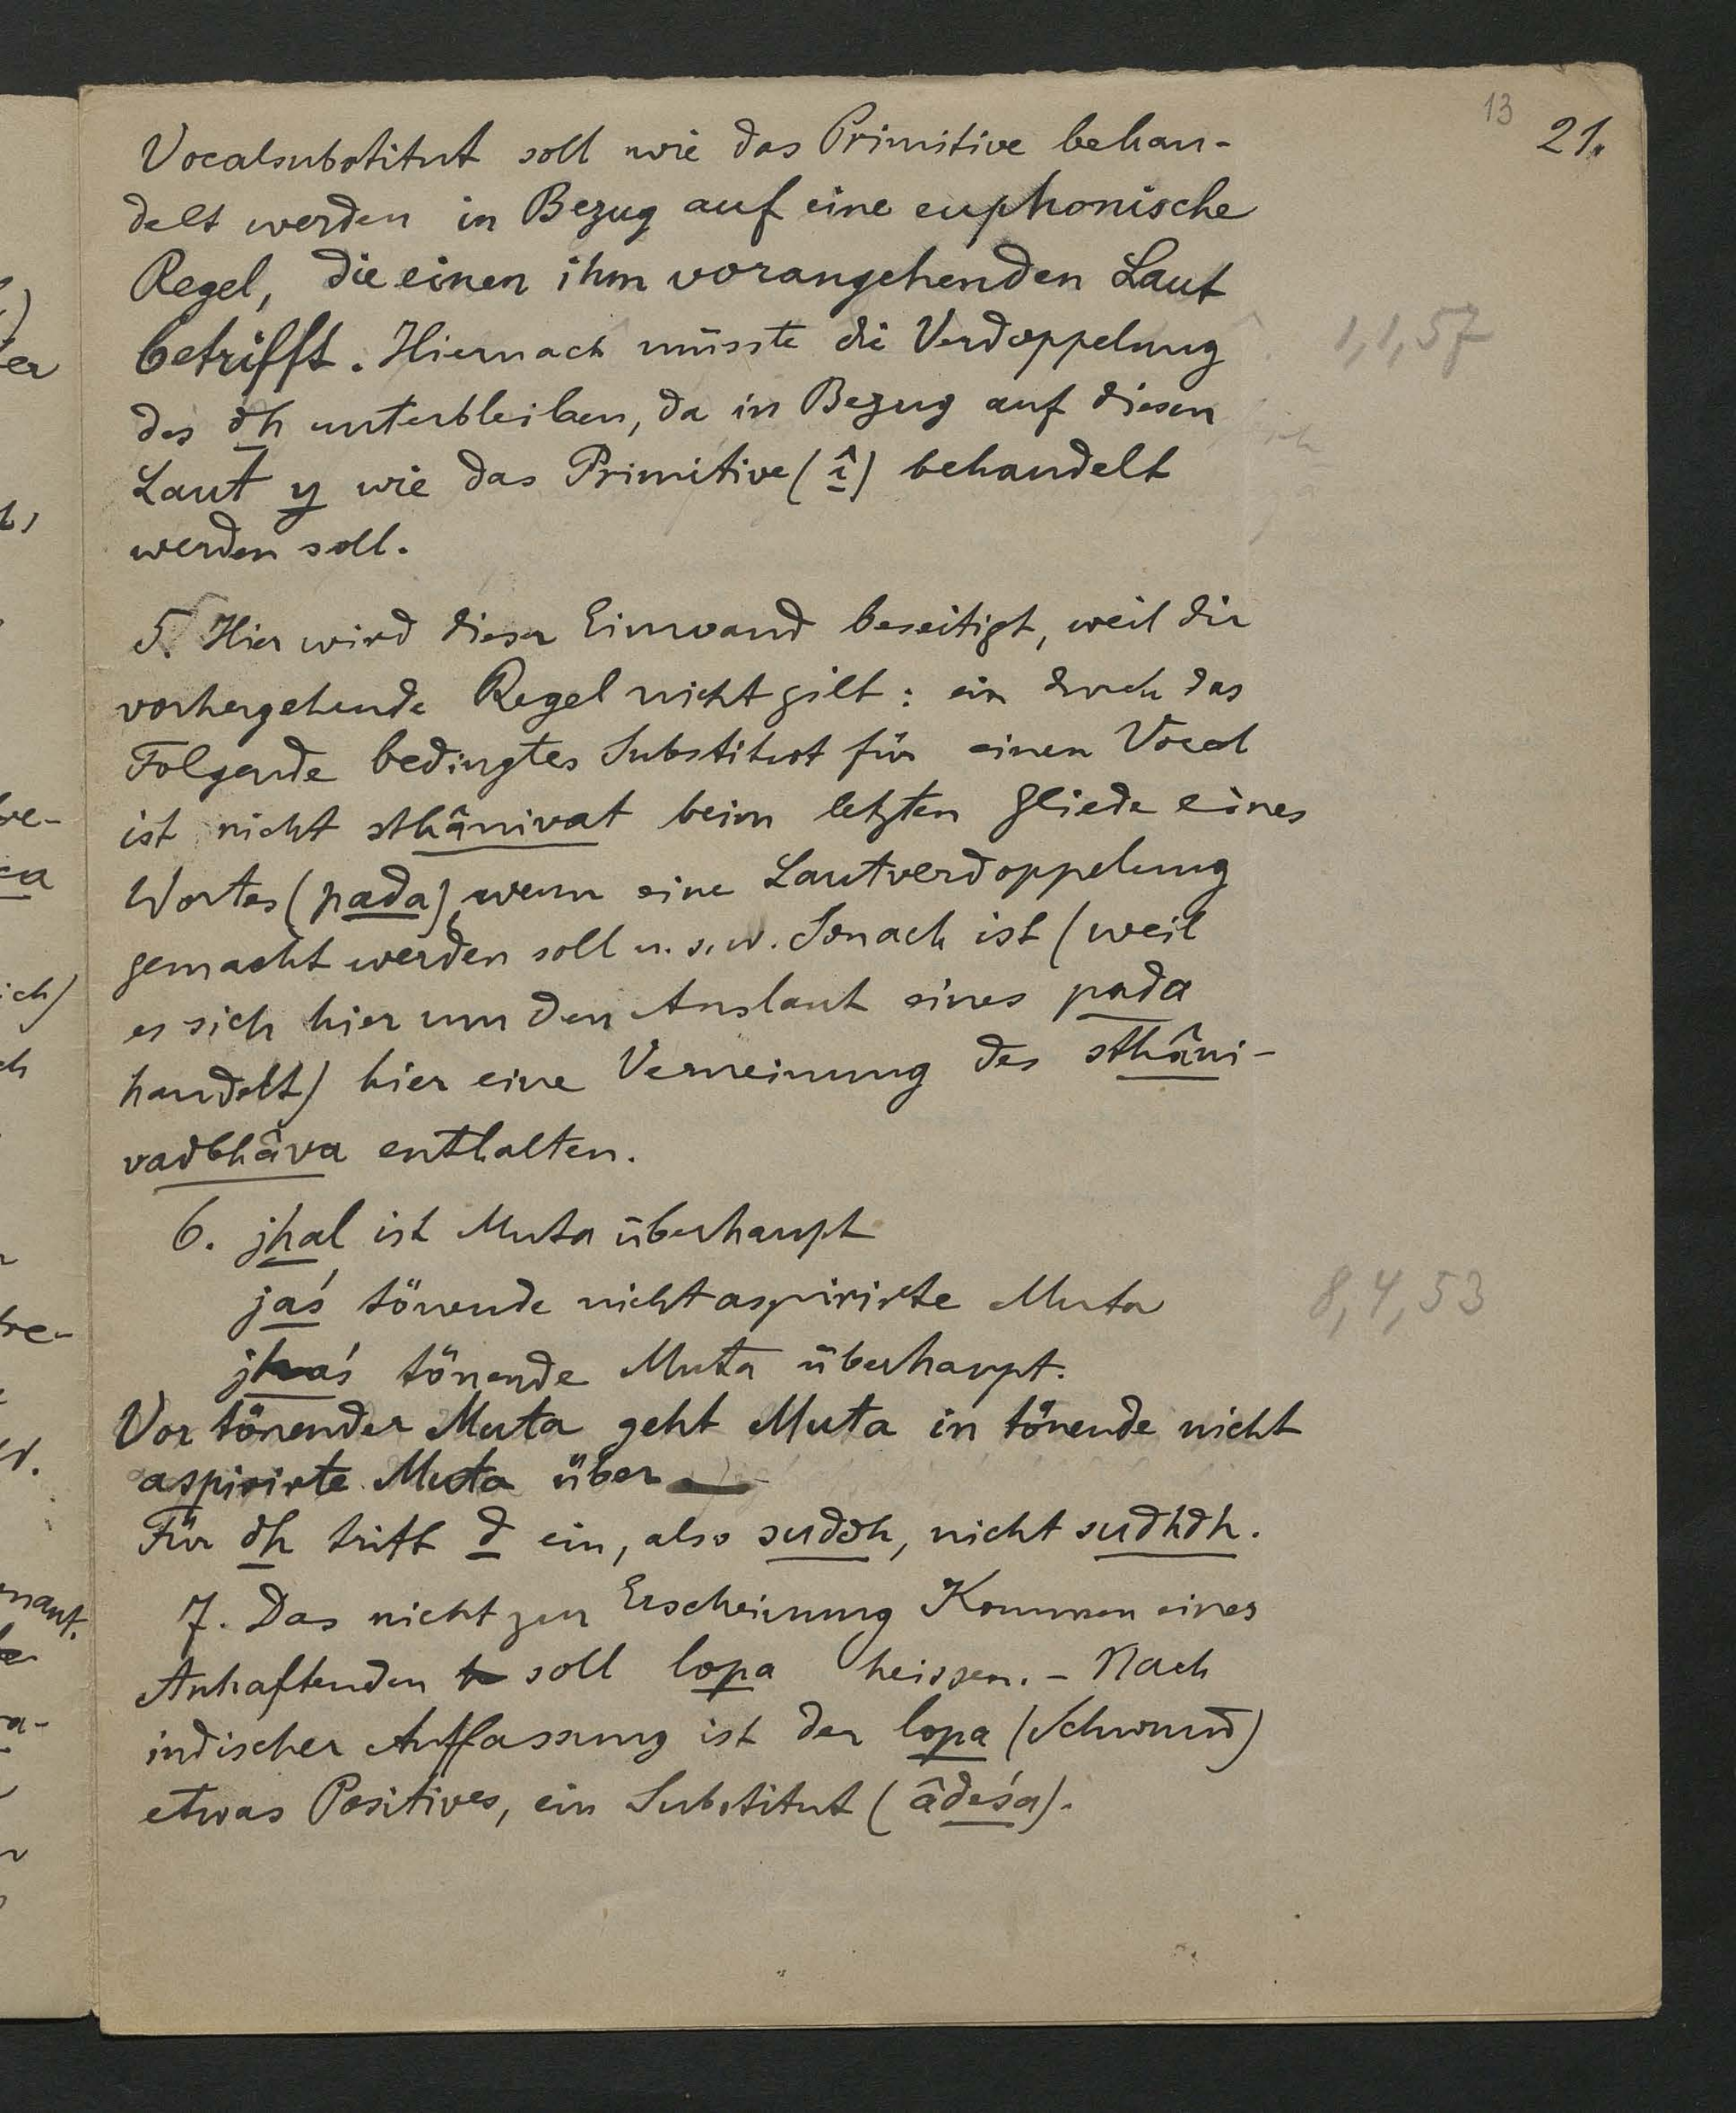 13
21.
Vocalsubstitut soll wie das Primitive behan-
delt werden in Bezug auf eine euphonische
Regel, die einen ihm vorangehenden Laut
betrifft. Hiernach müsste die Verdoppelung
1,1,57
des dh unterbleiben, da in Bezug auf diesen
Laut y wie das Primitive (î) behandelt
werden soll.
5. Hier wird dieser Einwand beseitigt, weil die
vorhergehende Regel nicht gilt: ein durch das
Folgende bedingtes Substitut für einen Vocal
ist nicht sthânivat beim letzten Gliede eines
Wortes (pada), wenn eine Lautverdoppelung
gemacht werden soll u. s. w. Sonach ist (weil
es sich hier um den Auslaut eines pada
handelt) hier eine Verneinung des sthâni-
vadbhâva enthalten.
6. jhal ist Muta überhaupt
jaś tönende nicht aspirirte Muta
8,4,53
jhaś tönende Muta überhaupt.
Vor tönender Muta geht Muta in tönende nicht
aspirirte Muta über
Für dh tritt d ein, also suddh, nicht sudhdh.
7. Das nicht zur Erscheinung Kommen eines
Anhaftenden soll lopa heissen. - Nach
indischer Auffassung ist der lopa (Schwund)
etwas Positives, ein Substitut (âdeśa).